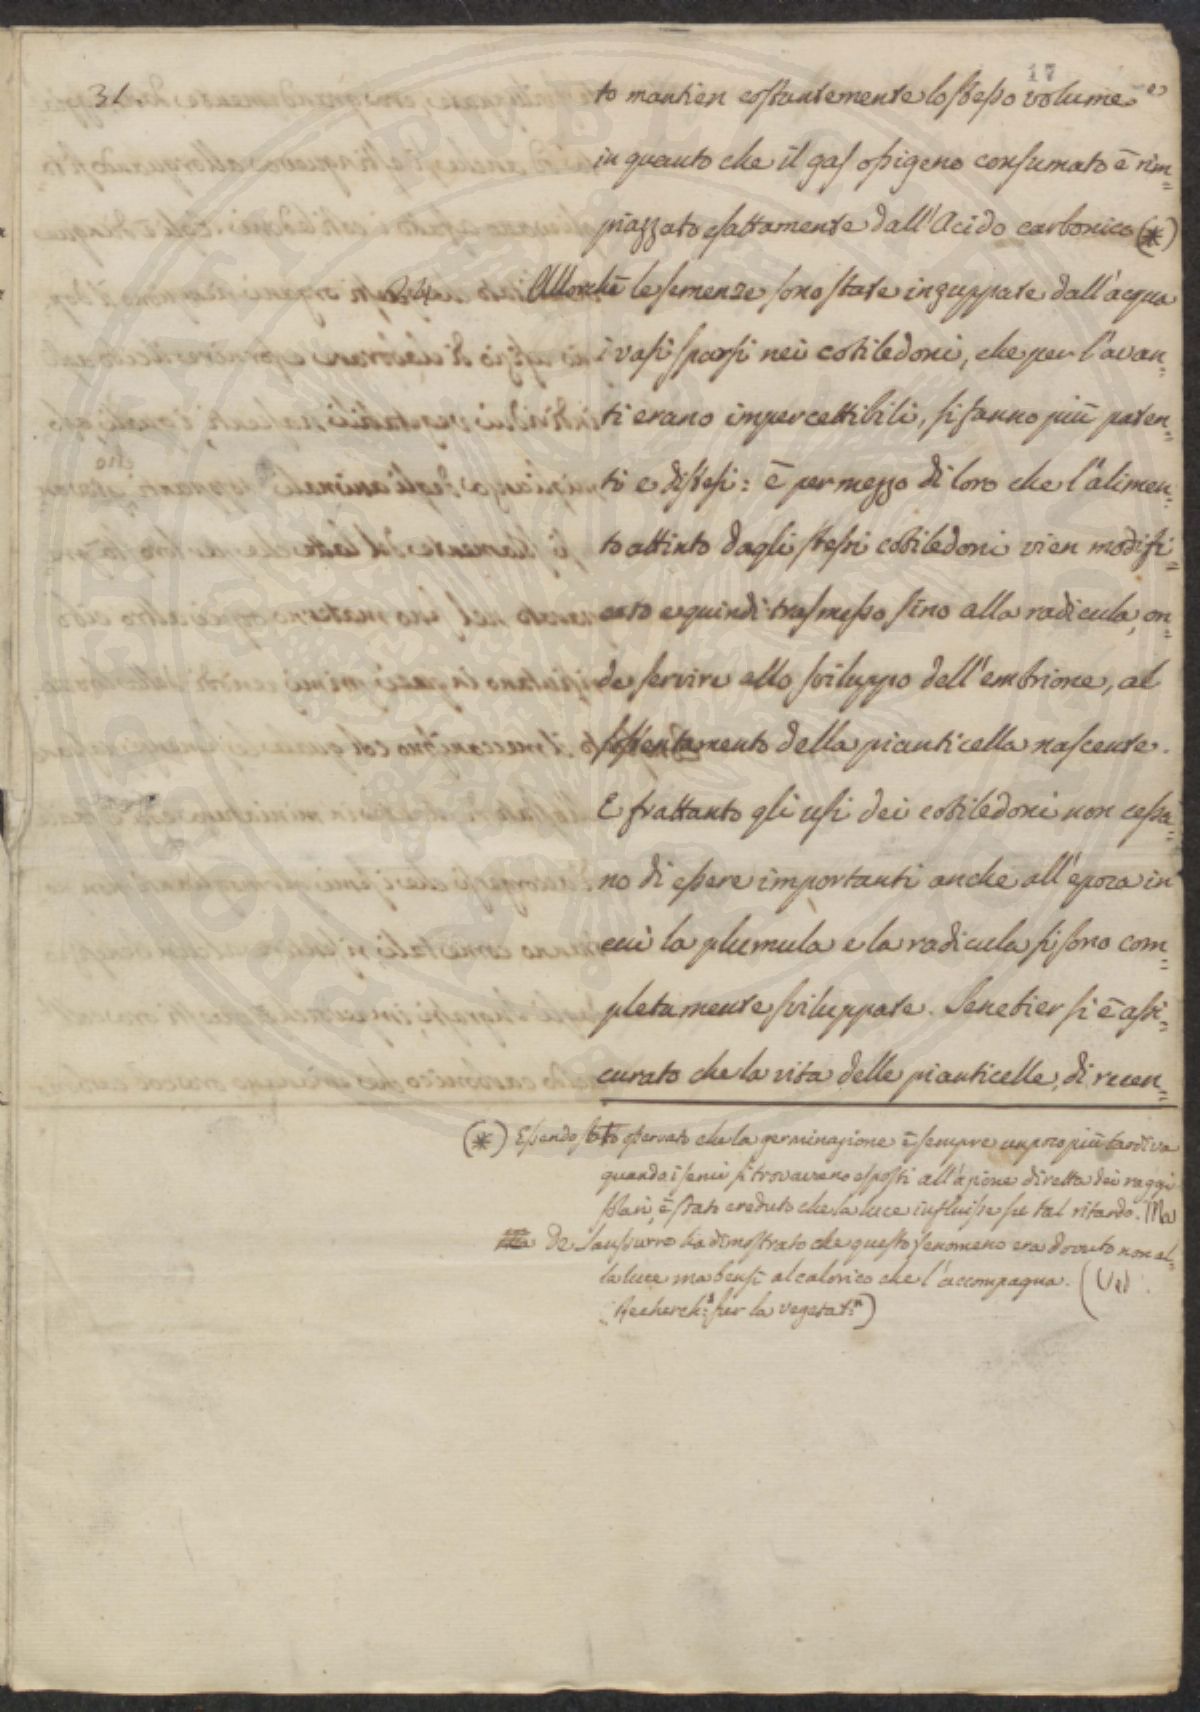 17
31.
to mantien costantemente lo stesso volume
in quanto che il gas ossigeno consumato è rim=
piazzato esattamente dall'Acido carbonico (*)
Allorchè le semenze sono state inzuppate dall'acqua
i vasi sparsi nei cotiledoni, che per l'avan=
ti erano impercettibili, si fanno più paten=
ti e distesi: è per mezzo di loro che l'alimen=
to attinto dagli stessi cotiledoni vien modifi=
cato e quindi trasmesso sino alla radicula, on=
de servire allo sviluppo dell'embrione, al
sostentamento della pianticella nascente.
E frattanto gli usi dei cotiledoni non cessa=
no di essere importanti anche all'epoca in
cui la plumula e la radicula si sono com=
pletamente sviluppate. Senebier si è assi=
curato che la vita delle pianticelle, di recen=
(*) Essendo stato osservato che la germinazione è sempre un poco più tardiva
quando i semi si trovavano esposti all'azione diretta dei raggi
solari, è stato creduto che la luce influisse su tal ritardo. Ma
De Saussurre ha dimostrato che questo fenomeno era dovuto non al=
la luce ma bensì al calorico che l'accompagna. (Ved.
Recherch:s sur la vegetat:n)